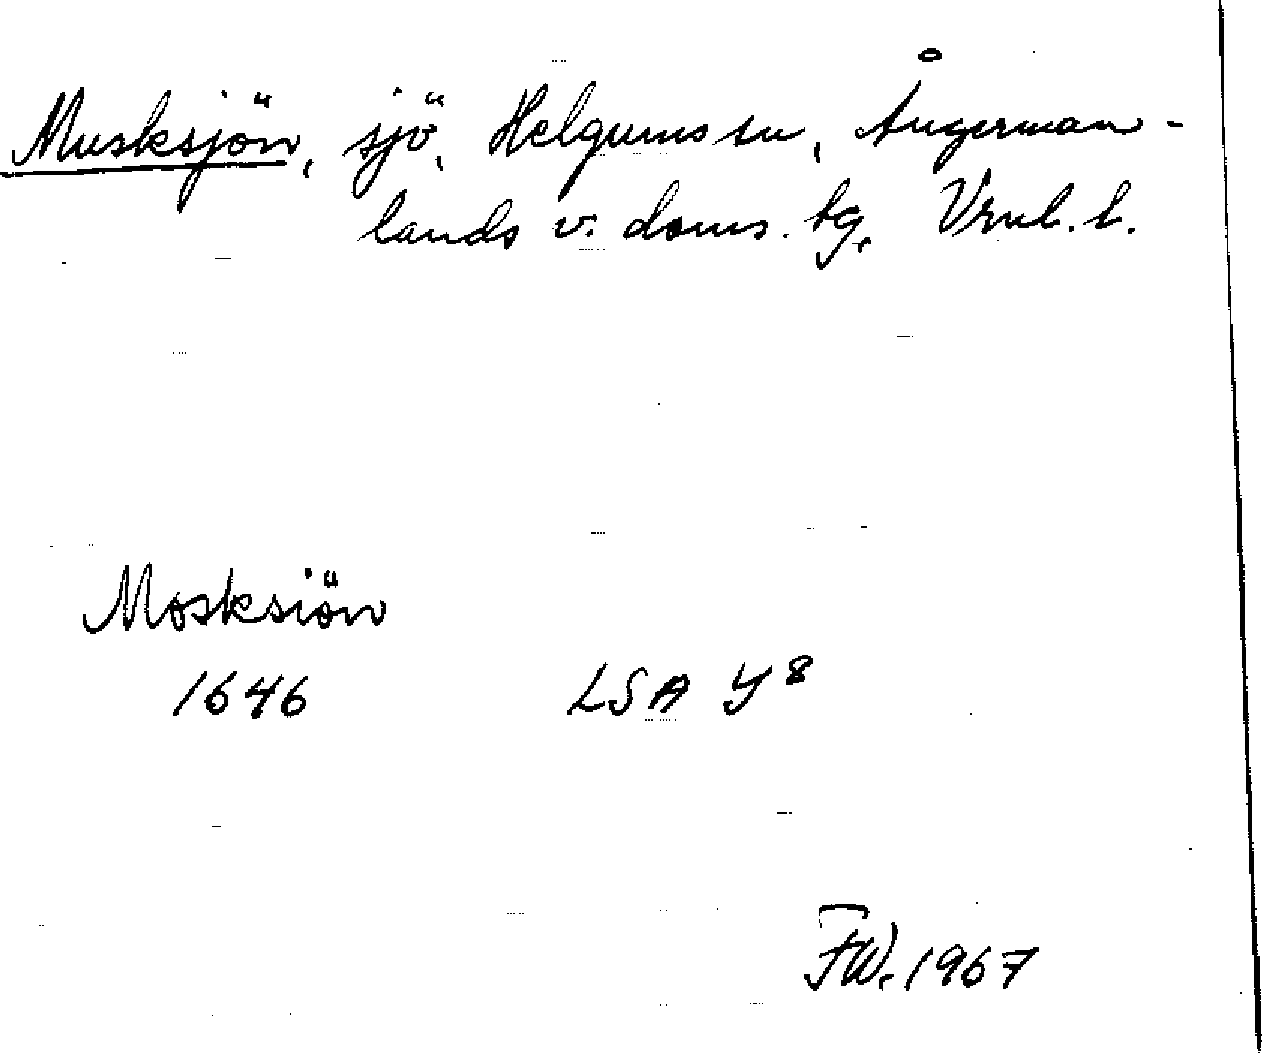 Musksjön, sjö, Helgums sn, Ångerman-
lands v. doms. tg, Vrnl. l.
Mosksiön
1646 LSA Y 8
FW. 1967